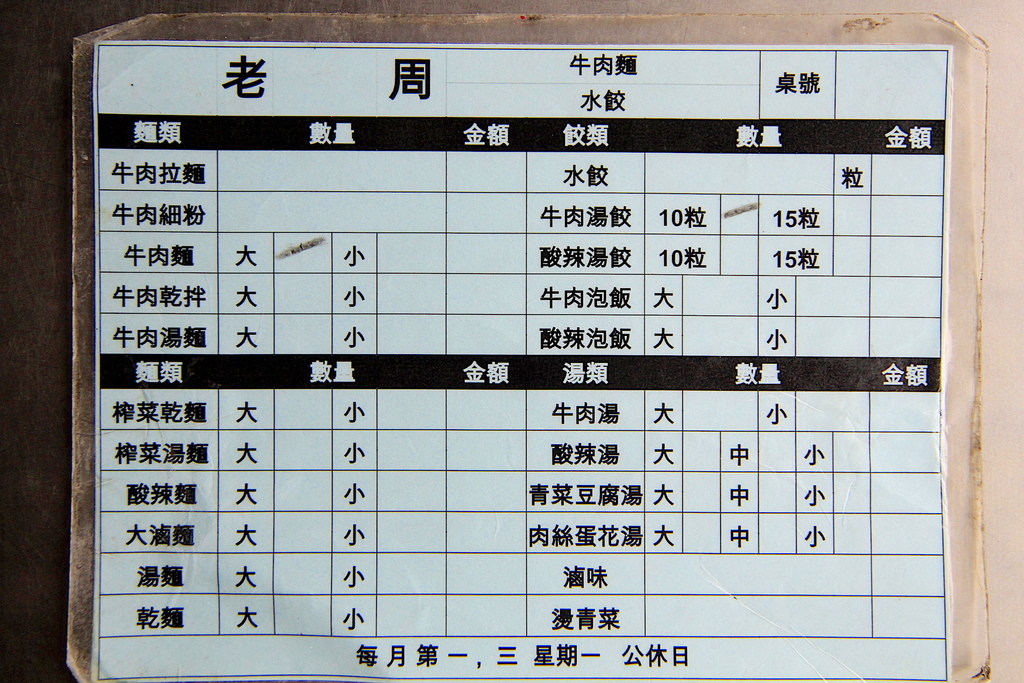 老 周 牛肉麵 水餃 桌號
麵類 數量 金額 餃類 數量 金額
牛肉拉麵 水餃 粒
牛肉細粉 牛肉湯餃 10粒 15粒
牛肉麵 大 小 酸辣湯餃 10粒 15粒
牛肉乾拌 大 小 牛肉泡飯 大 小
牛肉湯麵 大 小 酸辣泡飯 大 小
麵類 數量 金額 湯類 數量 金額
榨菜乾麵 大 小 牛肉湯 大 小
榨菜湯麵 大 小 酸辣湯 大 中 小
酸辣麵 大 小 青菜豆腐湯 大 中 小
大滷麵 大 小 肉絲蛋花湯 大 中 小
湯麵 大 小 滷味
乾麵 大 小 燙青菜
每月第一, 三 星期一 公休日